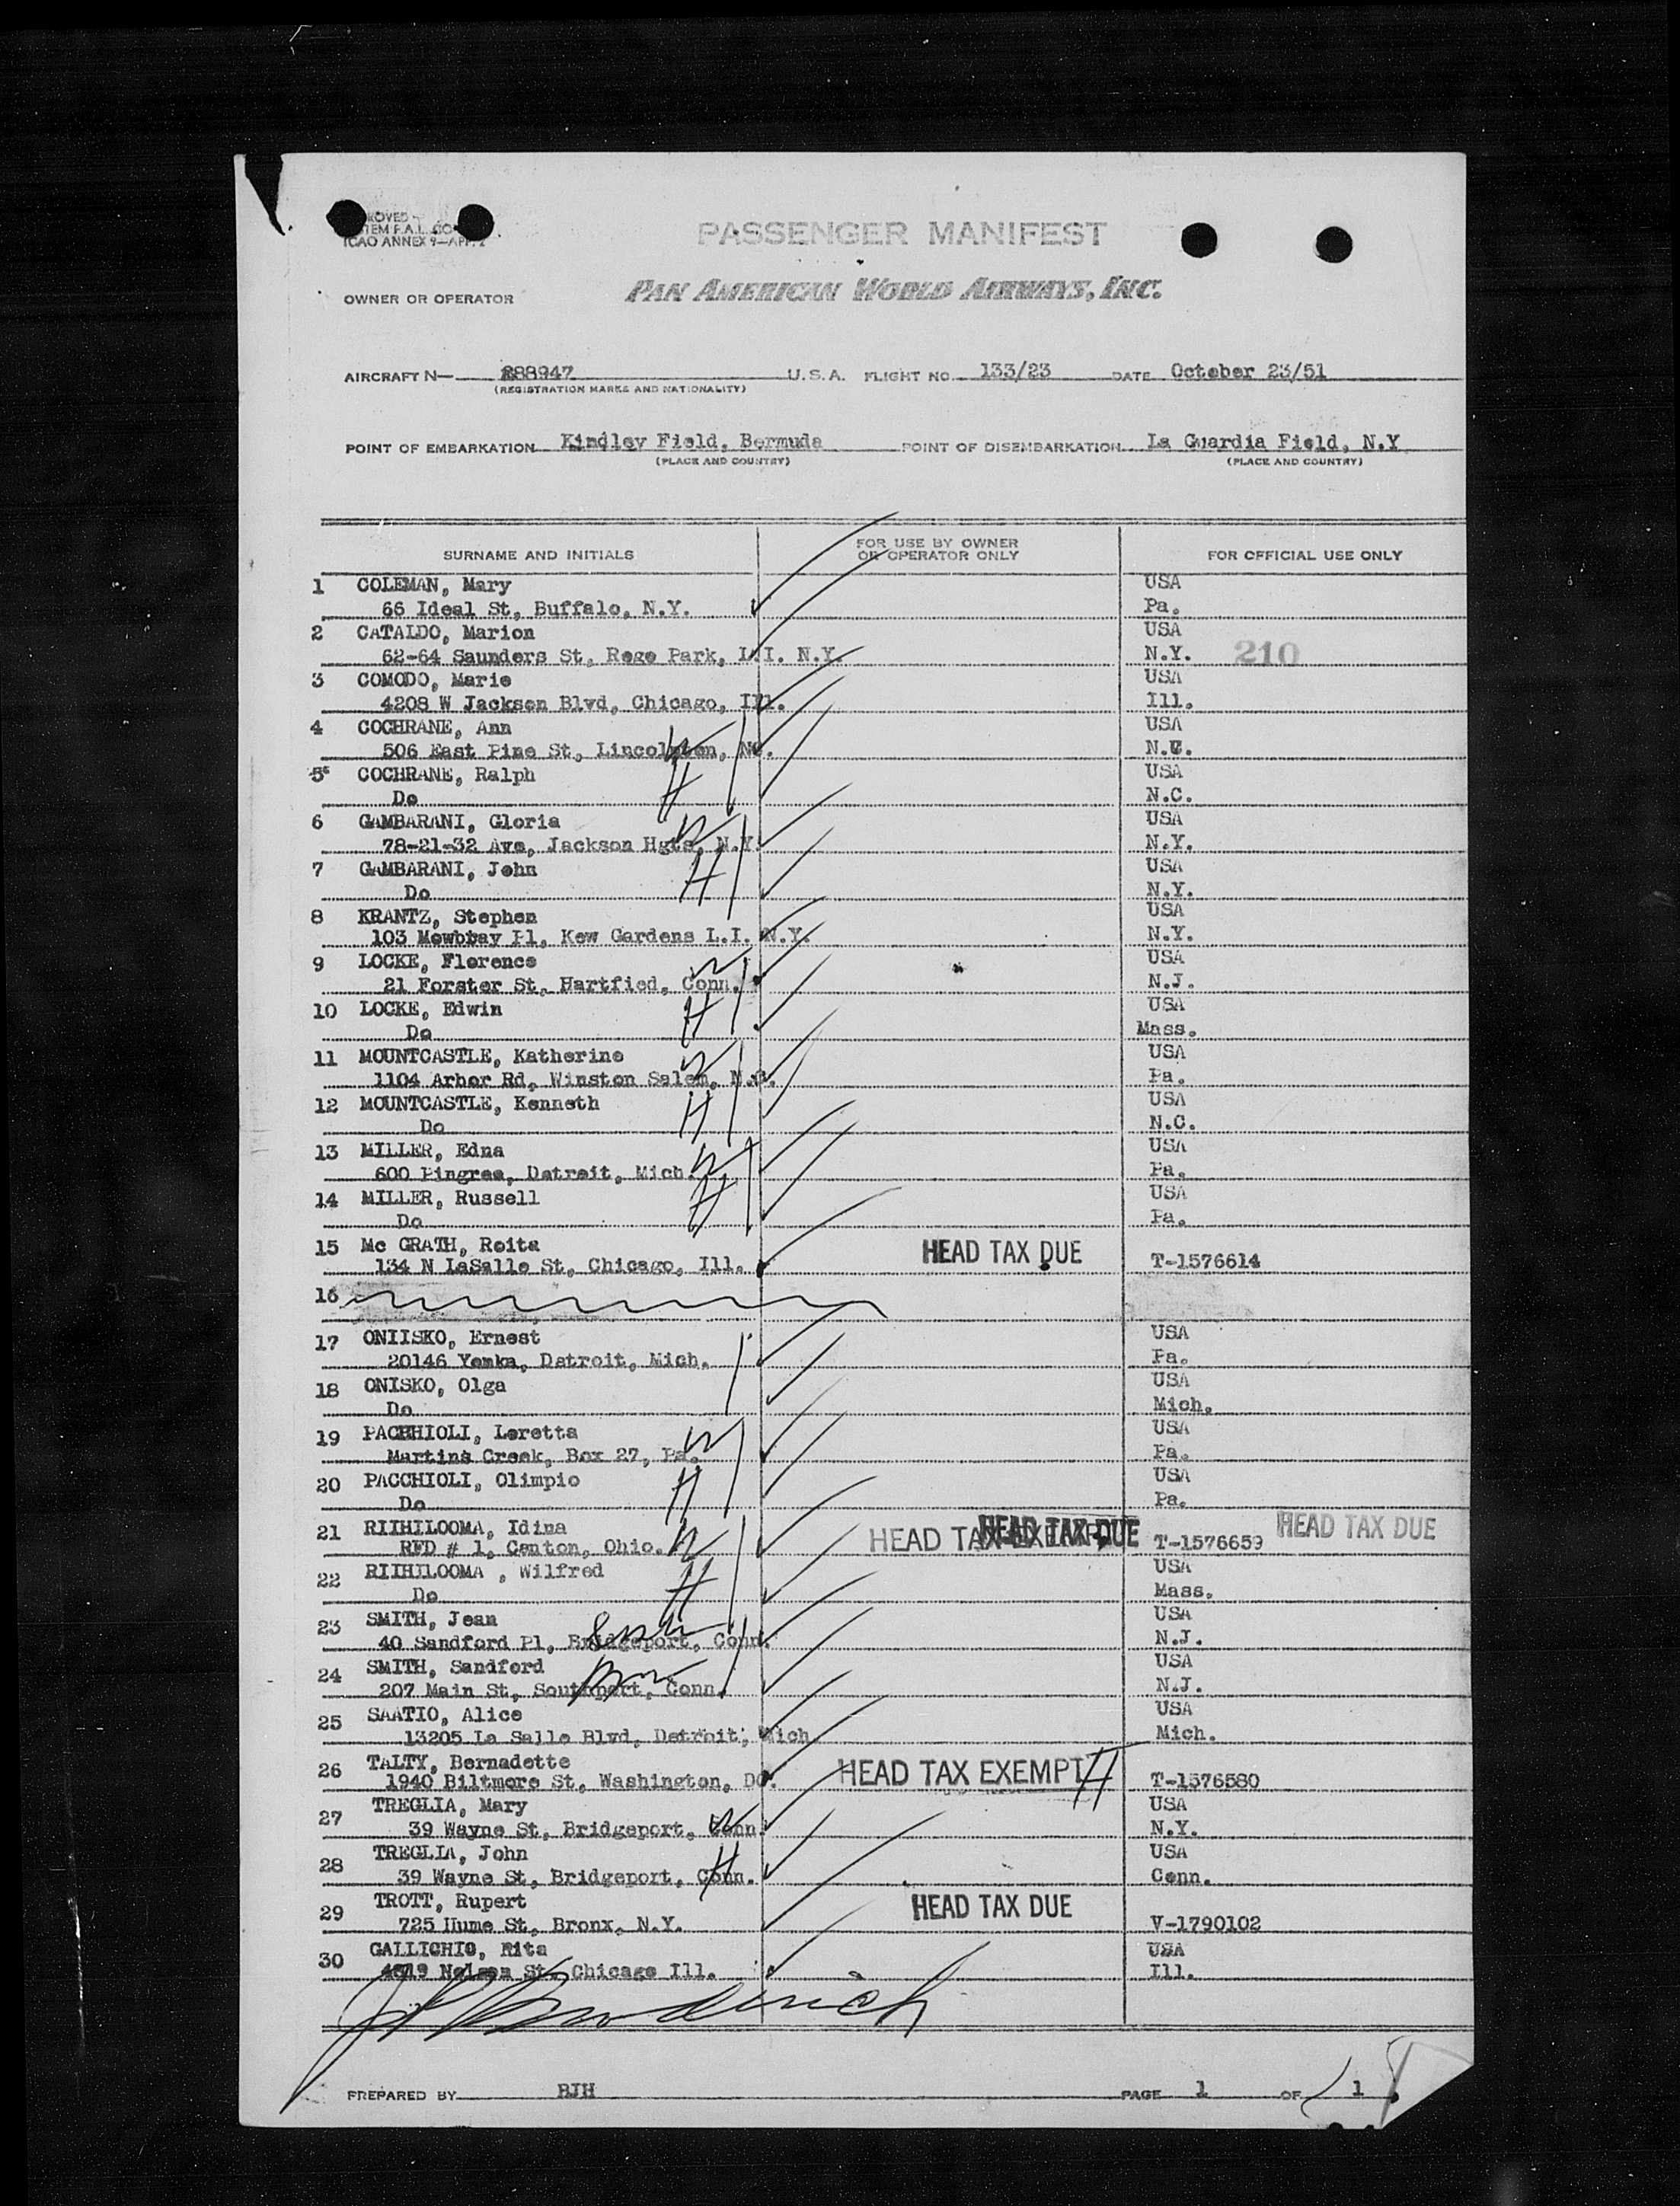 ROVED
TEM F.A.L. CO
ICAO ANNEX 9—APP. 2
PASSENGER MANIFEST
OWNER OR OPERATOR
PAN AMERICAN WORLD AIRWAYS, INC.
AIRCRAFT N— 888947 U.S.A. FLIGHT NO. 133/23 DATE October 23/51
(REGISTRATION MARKS AND NATIONALITY)
POINT OF EMBARKATION Kindley Field, Bermuda POINT OF DISEMBARKATION La Guardia Field, N.Y
(PLACE AND COUNTRY) (PLACE AND COUNTRY)
SURNAME AND INITIALS FOR USE BY OWNER OR OPERATOR ONLY FOR OFFICIAL USE ONLY
1 COLEMAN, Mary USA
66 Ideal St, Buffalo, N.Y. Pa.
2 CATALDO, Marion USA
62-64 Saunders St, Rego Park, L.I. N.Y. N.Y. 210
3 COMODO, Marie USA
4208 W Jackson Blvd, Chicago, Ill. Ill.
4 COCHRANE, Ann USA
506 East Pine St, Lincolnton, NC. N.C.
5 COCHRANE, Ralph USA
Do H N.C.
6 GAMBARANI, Gloria W USA
78-21-32 Ave, Jackson Hgts, N.Y. N.Y.
7 GAMBARANI, John USA
Do H N.Y.
8 KRANTZ, Stephen USA
103 Mowbray Pl, Kew Gardens L.I. N.Y. N.Y.
9 LOCKE, Florence W USA
21 Forster St, Hartfied, Conn. N.J.
10 LOCKE, Edwin USA
Do H Mass.
11 MOUNTCASTLE, Katherine W USA
1104 Arbor Rd, Winston Salem, N.C. Pa.
12 MOUNTCASTLE, Kenneth USA
Do H N.C.
13 MILLER, Edna USA
600 Pingree, Detroit, Mich. W Pa.
14 MILLER, Russell USA
Do H Pa.
15 Mc GRATH, Reita HEAD TAX DUE
134 N LaSalle St, Chicago, Ill. T-1576614
16
17 ONIISKO, Ernest USA
20146 Yonka, Detroit, Mich. Pa.
18 ONISKO, Olga USA
Do Mich.
19 PACCHIOLI, Loretta USA
Martins Creek, Box 27, Pa. W Pa.
20 PACCHIOLI, Olimpio USA
Do H Pa.
21 RIIHILOOMA, Idina HEAD TAX EXEMPT HEAD TAX DUE HEAD TAX DUE
RFD # 1, Canton, Ohio. W T-1576659
22 RIIHILOOMA , Wilfred USA
Do H Mass.
23 SMITH, Jean USA
40 Sandford Pl, Bridgeport, Conn. N.J.
24 SMITH, Sandford USA
207 Main St, Southport, Conn. N.J.
25 SAATIO, Alice USA
13205 La Salle Blvd, Detroit, Mich Mich.
26 TALTY, Bernadette HEAD TAX EXEMPT H
1940 Biltmore St, Washington, DC. T-1576580
27 TREGLIA, Mary USA
39 Wayne St, Bridgeport, Conn. W N.Y.
28 TREGLIA, John USA
39 Wayne St, Bridgeport, Conn. H Conn.
29 TROTT, Rupert HEAD TAX DUE
725 Hume St, Bronx, N.Y. V-1790102
30 GALLICHIO, Rita USA
Nelson St. Chicago Ill. Ill.
PREPARED BY BJH PAGE 1 OF 1